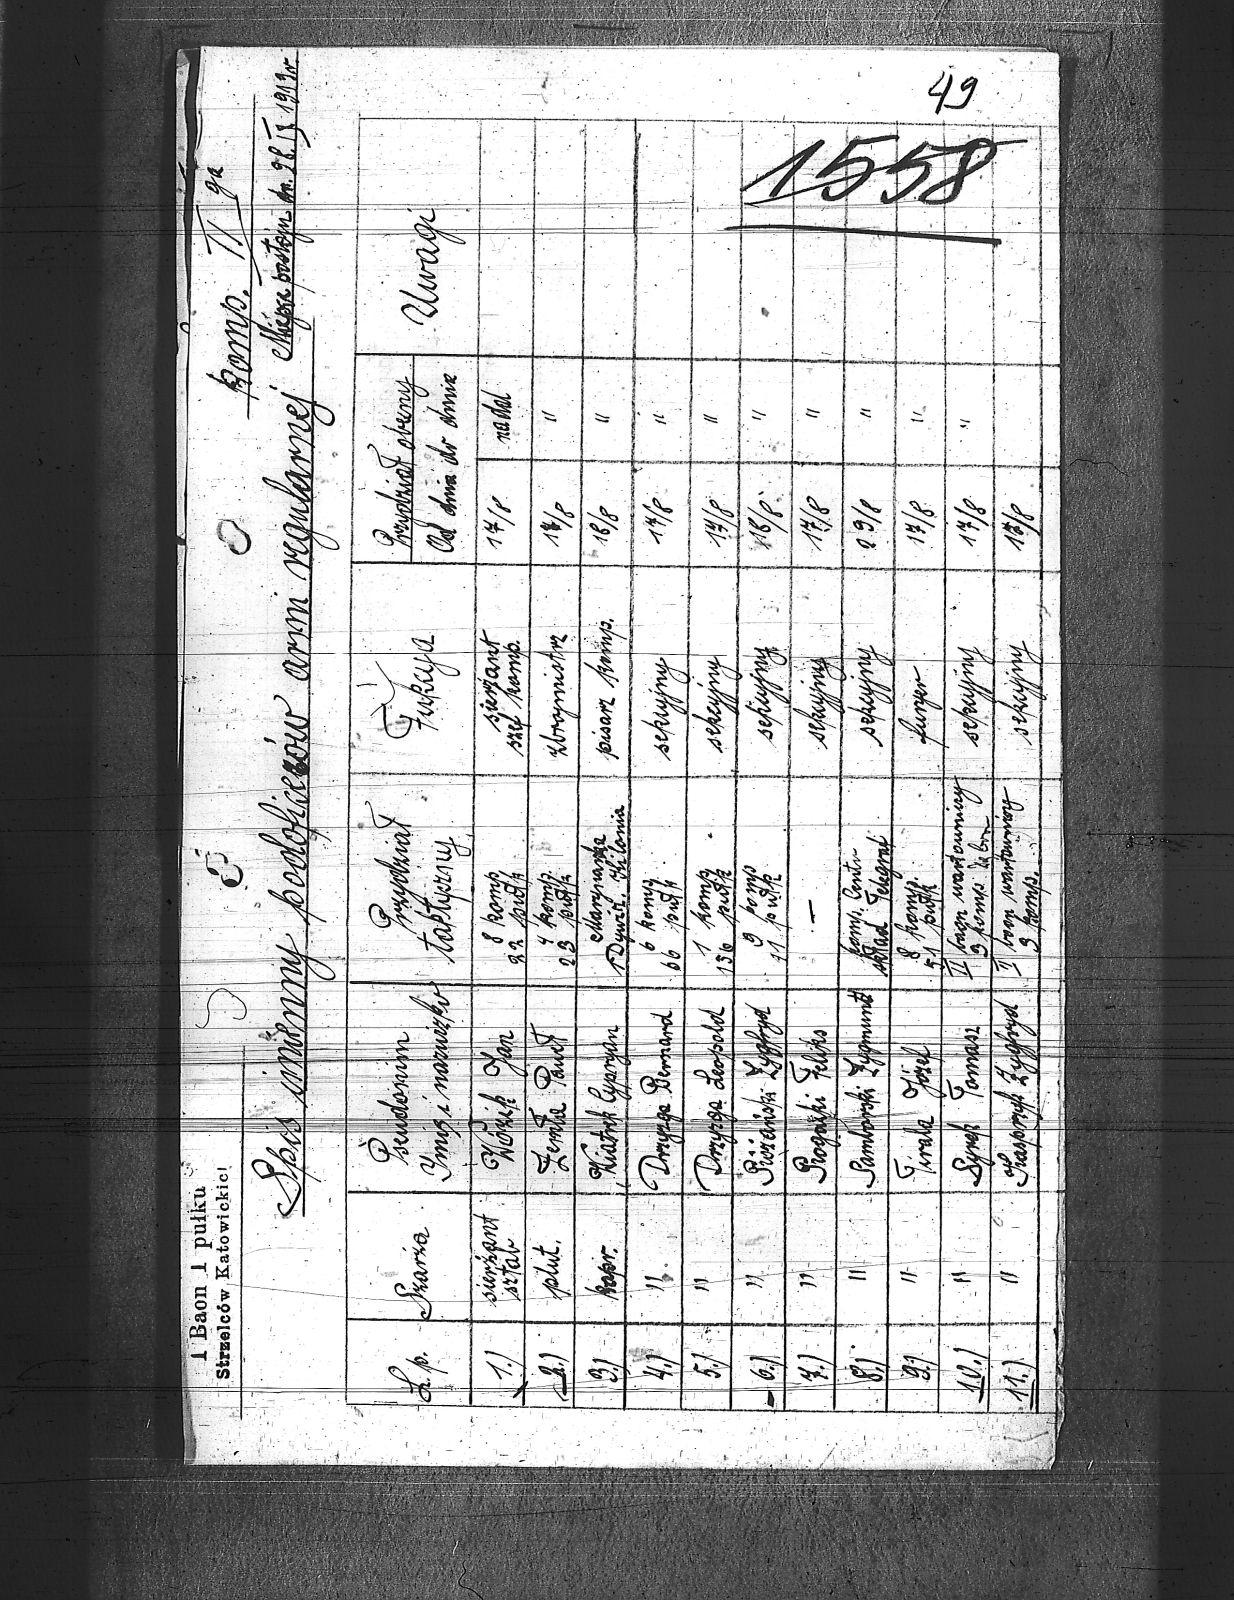 49
1558
1 Baon 1 pułku
Strzelców Katowickich
Komp. II ga
Miejsce postoju dn. 28. IX 1919r.
Spis imienny podoficerów armi regularnej
L.p. Szarża Pseudonim Przydział Fukcya Przydział obecny Uwagi
Imię i nazwisko taktyczny Od dnia do dnia
1.) sierżant Wózik Jan 8 komp. sierżant 17/8 nadal
sztab 22 pułk szef komp.
2.) plut. Zenta Paweł 4 komp. zbrojmistrz 17/8 "
23 pułk
3.) kapr. Cypryan Marynarka pisarz komp. 18/8 "
1 Dywiz. Kilonia
4.) " Drzyzga Bernard 6 komp. sekcyjny 17/8 "
66 pułk
5.) " Drzyzga Leopold 1 komp. sekcyjny 17/8 "
156 pułk
6.) " Zygfryd 9 komp sekcyjny 18/8 "
11 pułk
7.) " Rogalski Feliks — sekcyjny 17/8 "
8.) " Samborski Zygmunt komp. sekcyjny 29/8 "
skład Telegraf
9.) " Józef 8 komp. furyer 17/8 "
51 pułk
10.) " Syrek Tomasz II baon wartowniczy sekcyjny 17/8 "
3 komp
11.) " Kasprzyk Zygfryd II baon wartowniczy sekcyjny 17/8
3 komp.